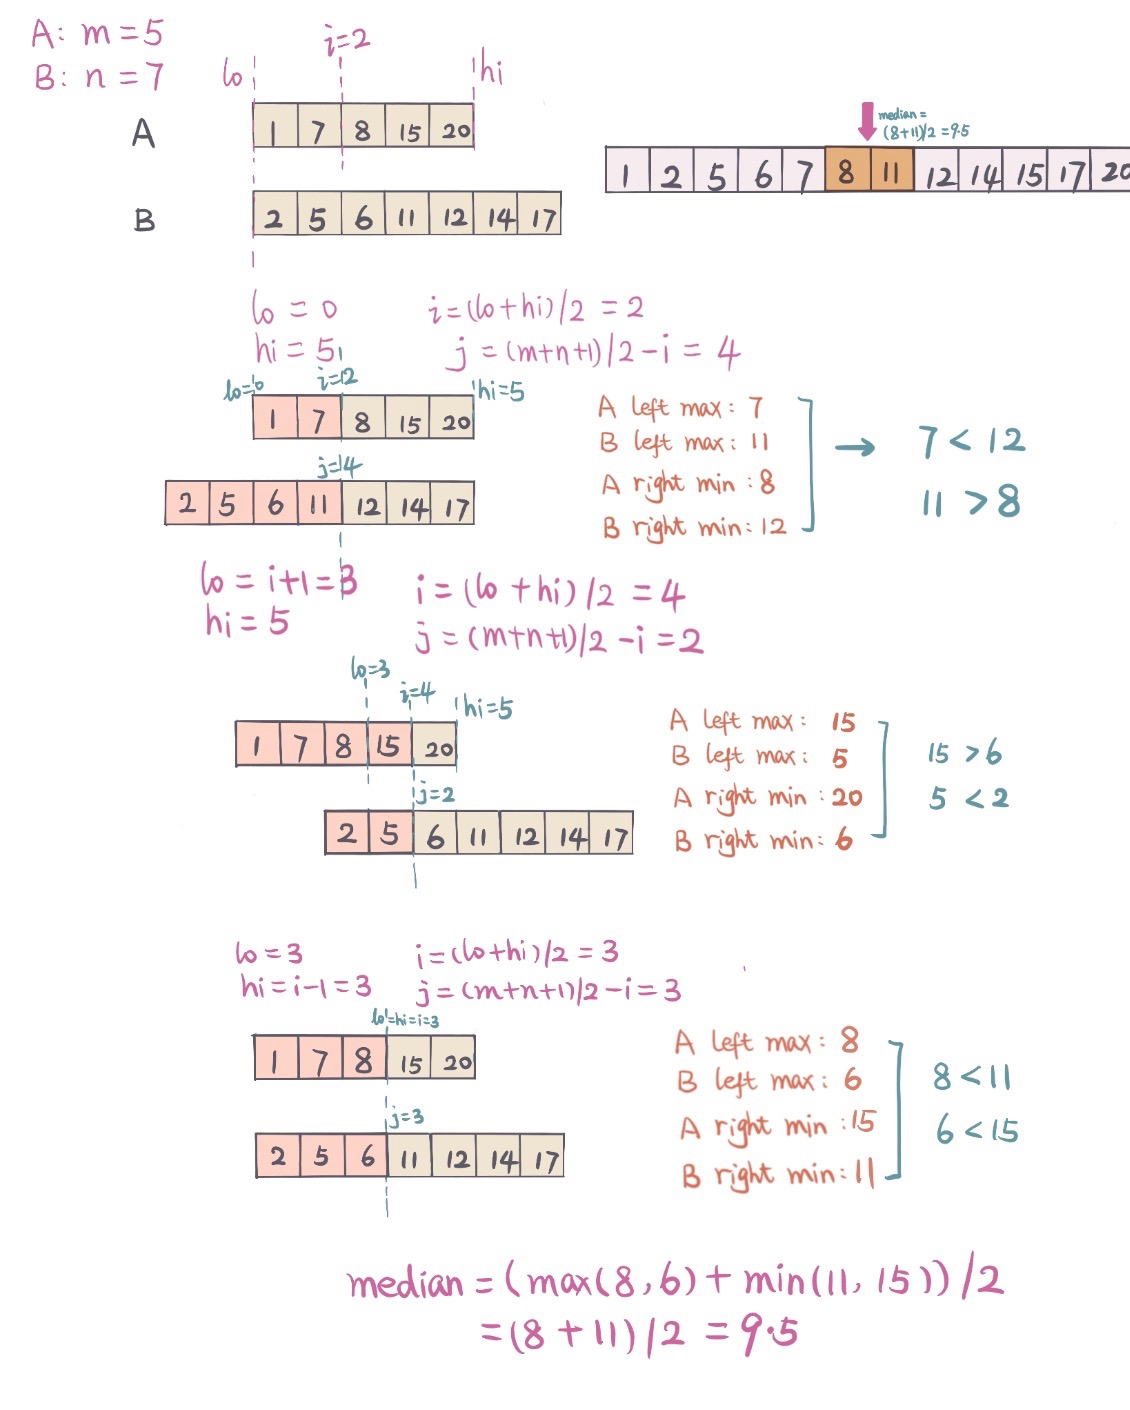 A: m = 5
B: n = 7
lo
i=2
hi
A
1 7 8 15 20
B
2 5 6 11 12 14 17
median =
(8+11)/2 = 9.5
1 2 5 6 7 8 11 12 14 15 17 20
lo = 0
hi = 5
i = (lo+hi)/2 = 2
j = (m+n+1)/2 - i = 4
lo=0
i=2
hi=5
1 7 8 15 20
j=4
2 5 6 11 12 14 17
A left max: 7
B left max: 11
A right min: 8
B right min: 12
→ 7 < 12
11 > 8
lo = i+1 = 3
hi = 5
i = (lo + hi)/2 = 4
j = (m+n+1)/2 - i = 2
lo=3
i=4
hi=5
1 7 8 15 20
j=2
2 5 6 11 12 14 17
A left max: 15
B left max: 5
A right min: 20
B right min: 6
15 > 6
5 < 2
lo = 3
hi = i-1 = 3
i = (lo+hi)/2 = 3
j = (m+n+1)/2 - i = 3
lo=hi=i=3
1 7 8 15 20
j=3
2 5 6 11 12 14 17
A left max: 8
B left max: 6
A right min: 15
B right min: 11
8 < 11
6 < 15
median = (max(8,6) + min(11,15))/2
= (8 + 11)/2 = 9.5